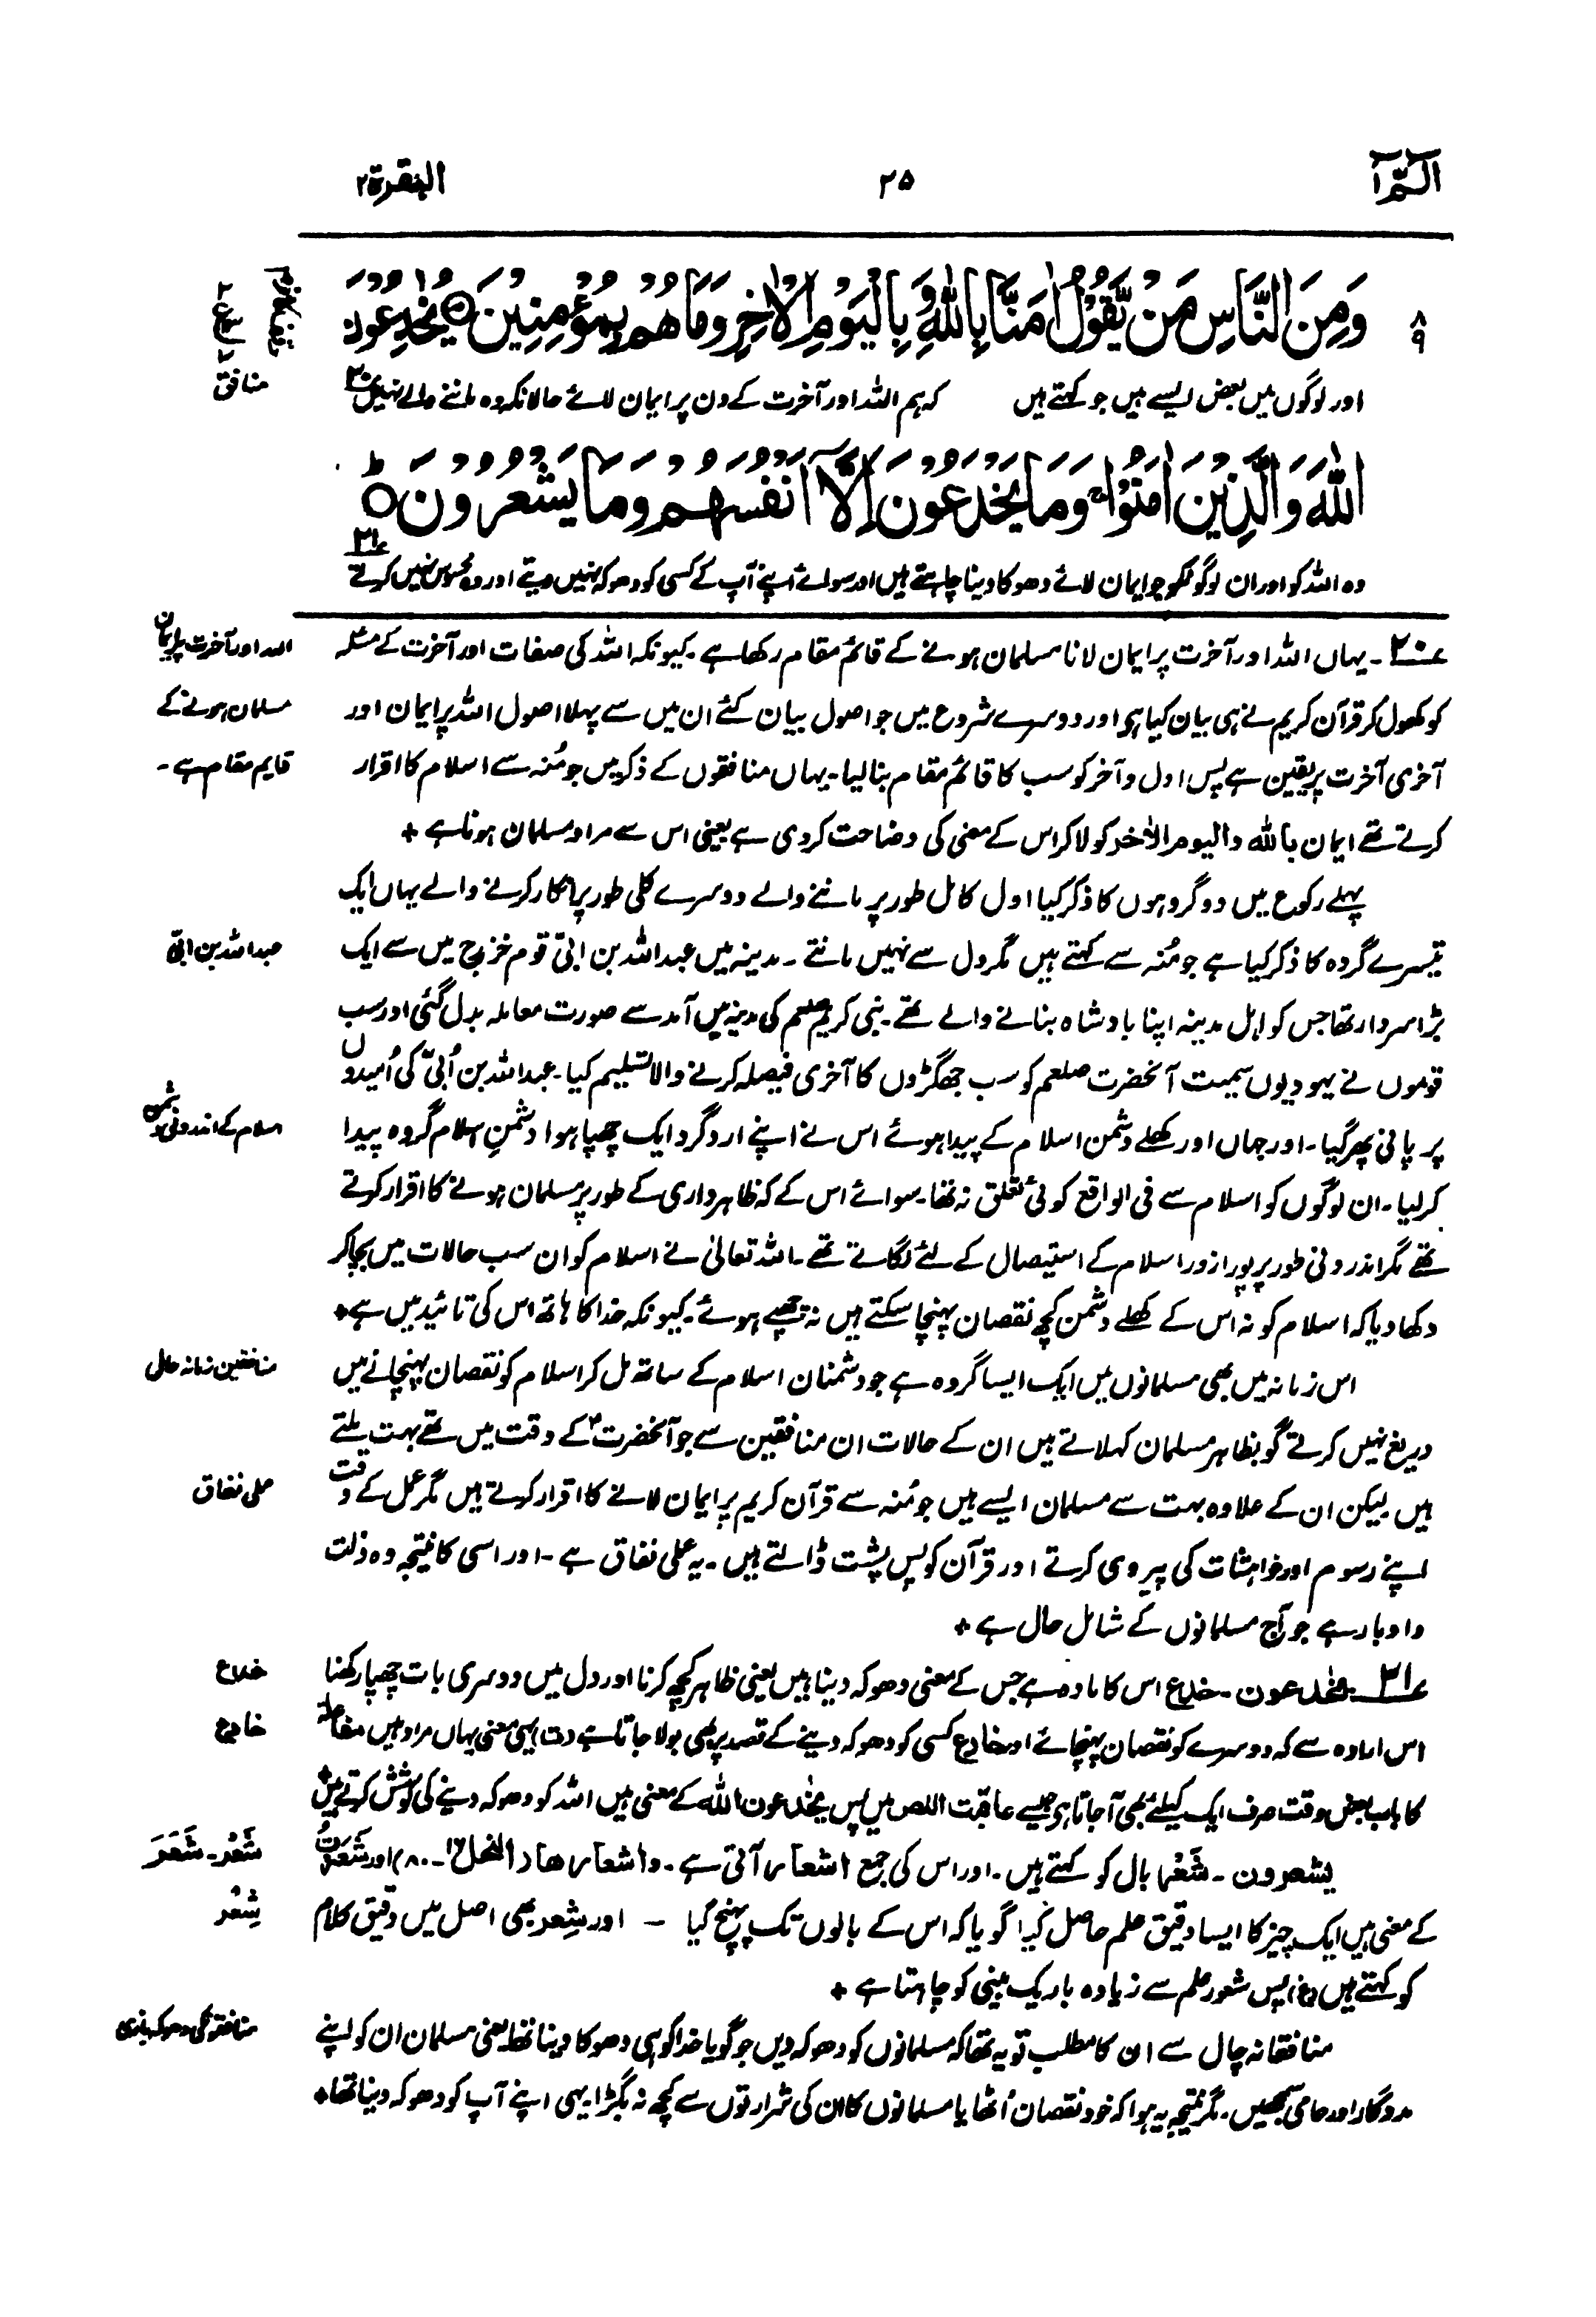 الٓمّٓ ١
٢٥
البقرۃ ٢
٨
٩
وَمِنَ النَّاسِ مَنْ يَّقُوْلُ اٰمَنَّا بِاللّٰهِ وَبِالْيَوْمِ الْاٰخِرِ وَمَا هُمْ بِمُؤْمِنِيْنَ ۘ يُخٰدِعُوْنَ
اور لوگوں میں بعض ایسے ہیں جو کہتے ہیں کہ ہم اللہ اور آخرت کے دن پر ایمان لائے حالانکہ وہ ماننے والے نہیں ٢٠
منافق
اللّٰهَ وَالَّذِيْنَ اٰمَنُوْا ۚ وَمَا يَخْدَعُوْنَ اِلَّاۤ اَنْفُسَهُمْ وَمَا يَشْعُرُوْنَ ؕ
وہ اللہ کو اور ان لوگونکو جو ایمان لائے دھوکا دینا چاہتے ہیں اور سوائے اپنے آپ کے کسی کو دھوکہ نہیں دیتے اور وہ محسوس نہیں کرتے ٢١
٢٠۔ یہاں اللہ اور آخرت پر ایمان لانا مسلمان ہونے کے قائم مقام رکھا ہے۔ کیونکہ اللہ کی صفات اور آخرت کے مسئلہ
اللہ اور آخرت پر ایمان
کو کھول کر قرآن کریم نے ہی بیان کیا ہی اور دوسرے شروع میں جو اصول بیان کئے ان میں سے پہلا اصول اللہ پر ایمان اور
مسلمان ہونے کے
آخری آخرت پر یقین ہے پس اول و آخر کو سب کا قائم مقام بنالیا۔ یہاں منافقوں کے ذکر میں جو مُنہ سے اسلام کا اقرار
قایم مقام ہے۔
کرتے تھے ایمان باللہ والیوم الاٰخر کو لا کر اس کے معنی کی وضاحت کردی ہے یعنی اس سے مراد مسلمان ہونا ہے +
پہلے رکوع میں دو گروہوں کا ذکر کیا اول کامل طور پر ماننے والے دوسرے کلی طور پر انکار کرنے والے یہاں ایک
تیسرے گروہ کا ذکر کیا ہے جو مُنہ سے کہتے ہیں مگر دل سے نہیں مانتے۔ مدینہ میں عبداللہ بن ابیّ قوم خزرج میں سے ایک
عبداللہ بن ابیّ
بڑا سردار تھا جس کو اہل مدینہ اپنا بادشاہ بنانے والے تھے۔ نبی کریم صلعم کی مدینہ میں آمد سے صورت معاملہ بدل گئی اور سب
قوموں نے یہودیوں سمیت آنحضرت صلعم کو سب جھگڑوں کا آخری فیصلہ کرنے والا تسلیم کیا۔ عبداللہ بن اُبیّ کی اُمیدوں
پر پانی پھر گیا۔ اور جہاں اور کھلے دشمن اسلام کے پیدا ہوئے اس نے اپنے اردگرد ایک چھپا ہوا دشمنِ اسلام گروہ پیدا
اسلام کے اندرونی دشمن
کرلیا۔ ان لوگوں کو اسلام سے فی الواقع کوئی تعلق نہ تھا۔ سوائے اس کے کہ ظاہرداری کے طور پر مسلمان ہونے کا اقرار کرتے
تھے مگر اندرونی طور پر پورا زور اسلام کے استیصال کے لئے لگاتے تھے۔ اللہ تعالیٰ نے اسلام کو ان سب حالات میں بچاکر
دکھا دیا کہ اسلام کو نہ اس کے کھلے دشمن کچھ نقصان پہنچا سکتے ہیں نہ چھپے ہوئے۔ کیونکہ خدا کا ہاتھ اس کی تائید میں ہے +
اس زمانہ میں بھی مسلمانوں میں ایک ایسا گروہ ہے جو دشمنان اسلام کے ساتھ مل کر اسلام کو نقصان پہنچانے میں
منافقین زمانہ حال
دریغ نہیں کرتے گو بظاہر مسلمان کہلاتے ہیں ان کے حالات ان منافقین سے جو آنحضرت ؐ کے وقت میں تھے بہت ملتے
ہیں لیکن ان کے علاوہ بہت سے مسلمان ایسے ہیں جو مُنہ سے قرآن کریم پر ایمان لانے کا اقرار کرتے ہیں مگر عمل کے وقت
عملی نفاق
اپنے رسوم اور خواہشات کی پیروی کرتے اور قرآن کو پس پشت ڈالتے ہیں۔ یہ عملی نفاق ہے۔ اور اسی کا نتیجہ وہ ذلت
و ادبار ہے جو آج مسلمانوں کے شامل حال ہے +
٢١۔ یخٰدعون۔ خداع اس کا مادہ ہے جس کے معنی دھوکہ دینا ہیں یعنی ظاہر کچھ کرنا اور دل میں دوسری بات چھپا رکھنا
خداع
اس ارادہ سے کہ دوسرے کو نقصان پہنچائے اور خادع کسی کو دھوکہ دینے کے قصد پر بھی بولا جاتا ہے (ت) یہی معنی یہاں مراد ہیں مفاعلہ
خادع
کا باب بعض وقت صرف ایک کیلئے بھی آجاتا ہی جیسے عاقبت اللص میں پس یخٰدعون اللہ کے معنی ہیں اللہ کو دھوکہ دینے کی کوشش کرتے ہیں +
یشعرون۔ شَعْر بال کو کہتے ہیں۔ اور اس کی جمع اشعار آتی ہے۔ واشعارھا (النحل ١٦۔ ٨٠) اور شَعَرْتُ
شَعْر۔ شَعَرَ
کے معنی ہیں ایک چیز کا ایسا دقیق علم حاصل کیا گویا کہ اس کے بالوں تک پہنچ گیا – اور شِعر بھی اصل میں دقیق کلام
شِعْر
کو کہتے ہیں (غ) پس شعور علم سے زیادہ باریک بینی کو چاہتا ہے +
منافقانہ چال سے ان کا مطلب تو یہ تھا کہ مسلمانوں کو دھوکہ دیں جو گویا خدا کو ہی دھوکا دینا تھا یعنی مسلمان ان کو اپنے
منافقوں کی دھوکہ بازی
مددگار اور حامی سمجھیں۔ مگر نتیجہ یہ ہوا کہ خود نقصان اُٹھایا مسلمانوں کا ان کی شرارتوں سے کچھ نہ بگڑا یہی اپنے آپ کو دھوکہ دینا تھا +